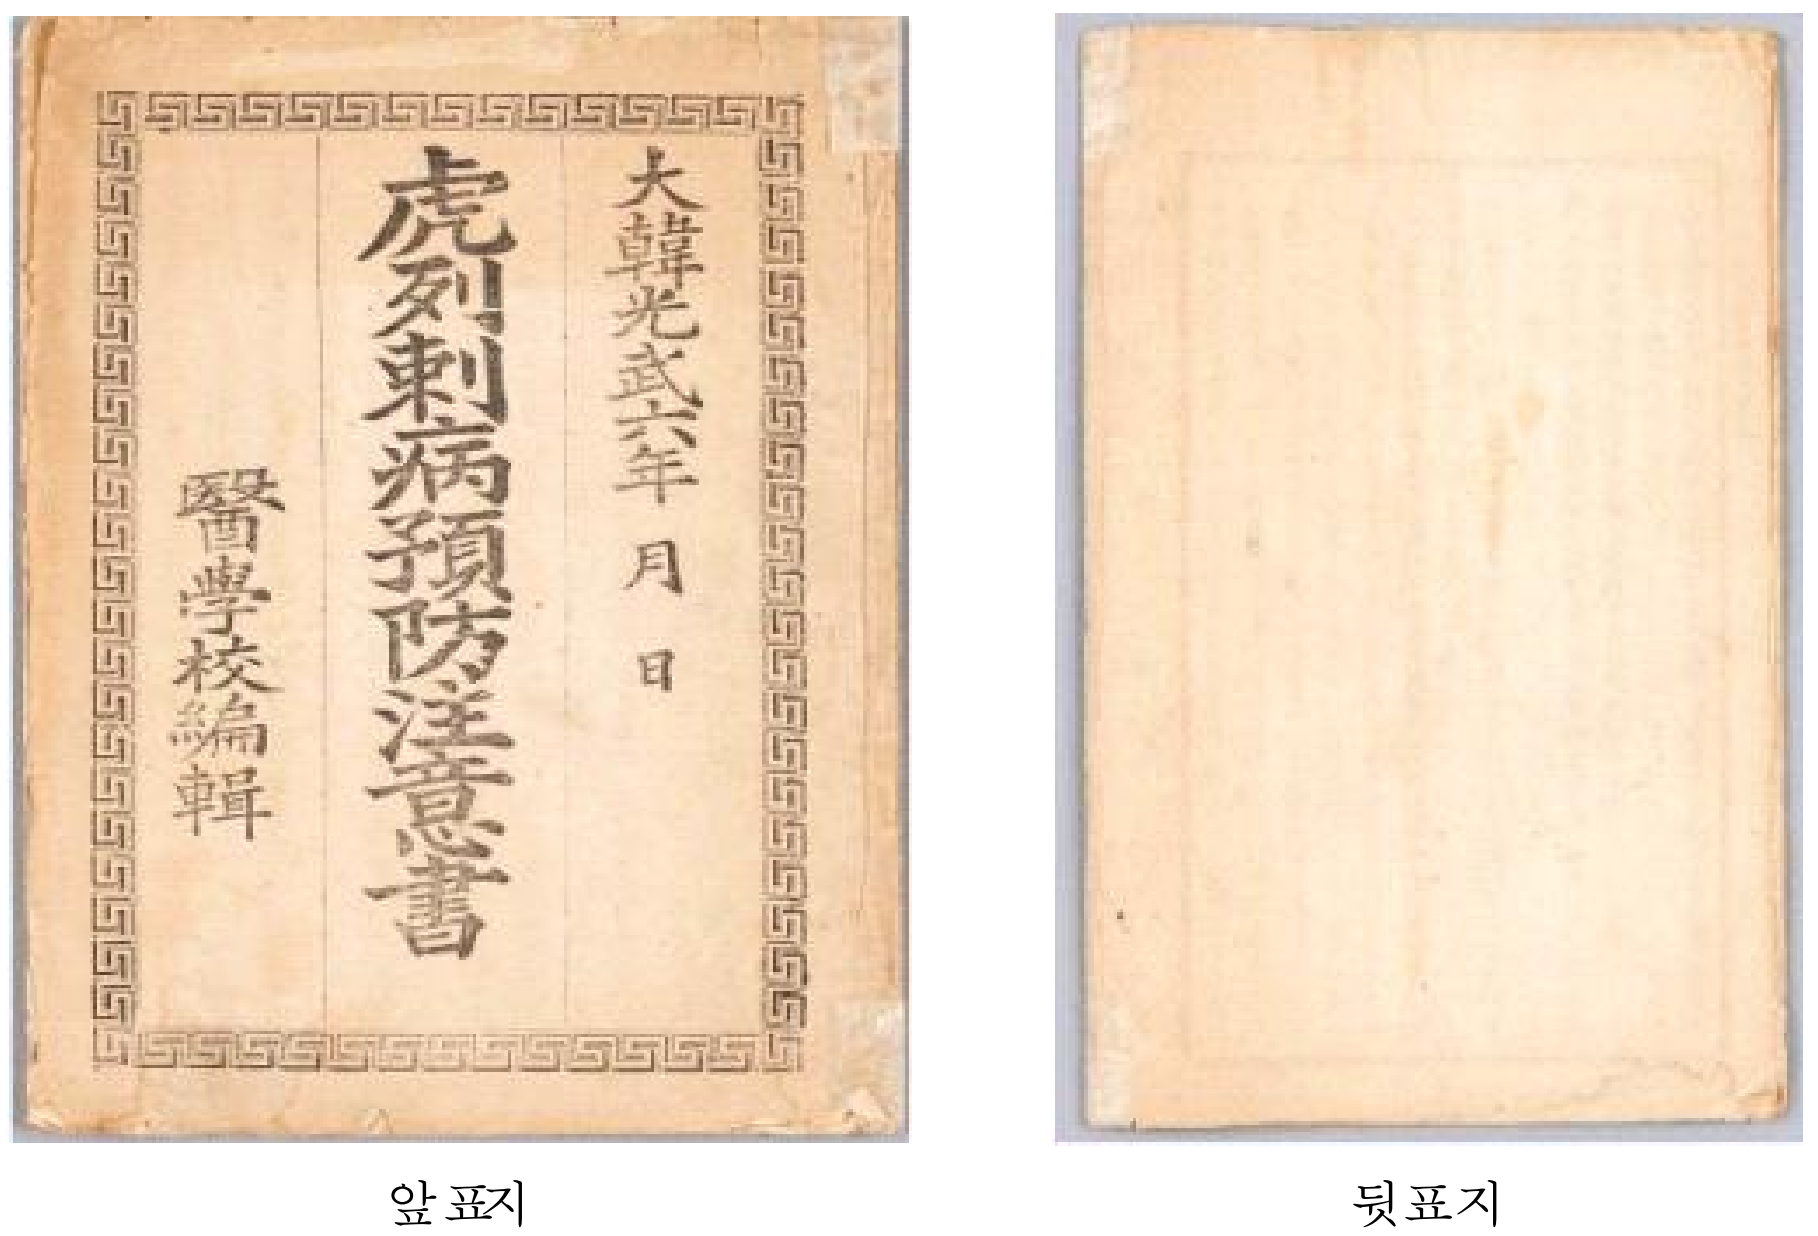 大韓光武六年 月 日
虎列剌病預防注意書
醫學校編輯
앞표지
뒷표지